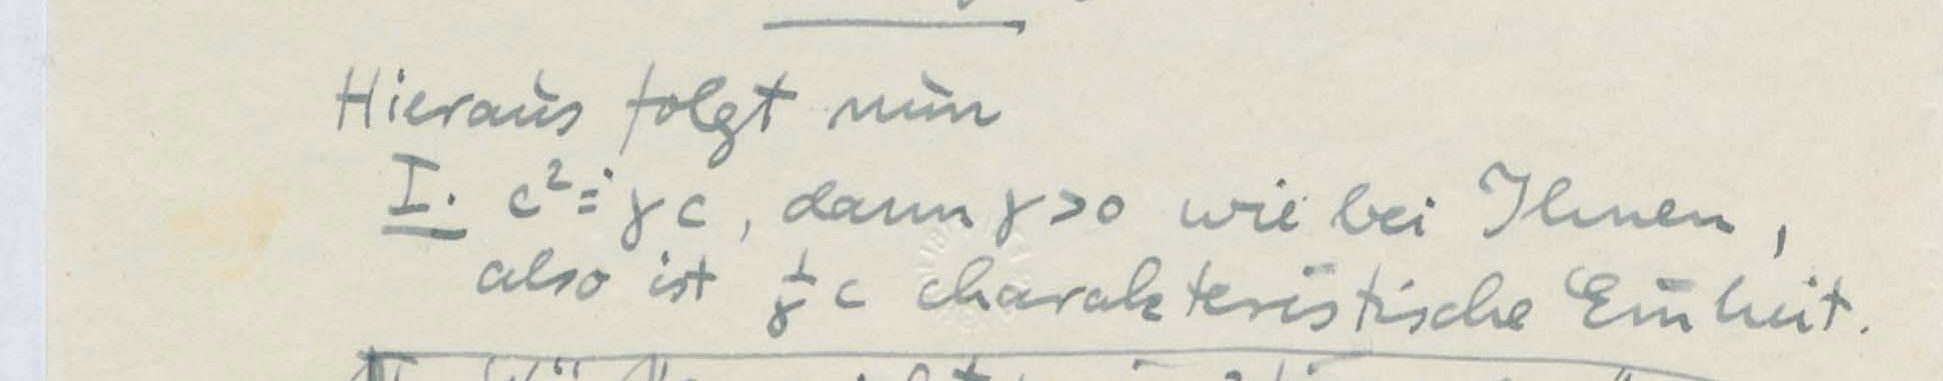 Hieraus folgt nun
I. c² = γc, dann γ>0 wie bei Ihnen,
also ist 1/γ c charakteristische Einheit.